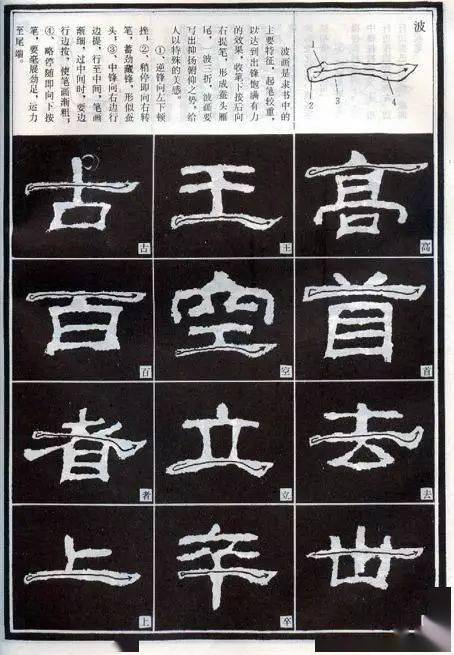 波
1
2
3
4
波画是隶书中的
主要特征，起笔较重，
以达到出锋饱满有力
的效果，收笔下按后向
右提笔，形成蚕头雁
尾，一波三折，波画要
写出抑扬俯仰之势，给
人以特殊的美感。
①逆锋向左下顿
挫；②稍停即向右转
笔，蓄劲藏锋，形似蚕
头；③、中锋向右边行
边提，行至中间，笔画
渐细，过中间时，要边
行边按，使笔画渐粗；
④、略停随即向下按
笔，要毫展劲足，运力
至尾端。
高
高
王
王
古
古
首
首
空
空
百
百
去
去
立
立
者
者
世
卒
卒
上
上